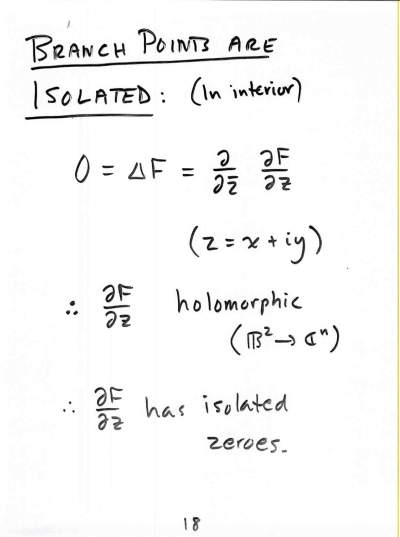 BRANCH POINTS ARE
ISOLATED: (In interior)
0 = ΔF = ∂/∂z̄ ∂F/∂z
(z = x + iy)
∴ ∂F/∂z holomorphic
(𝔹² → ℂⁿ)
∴ ∂F/∂z has isolated
zeroes.
18